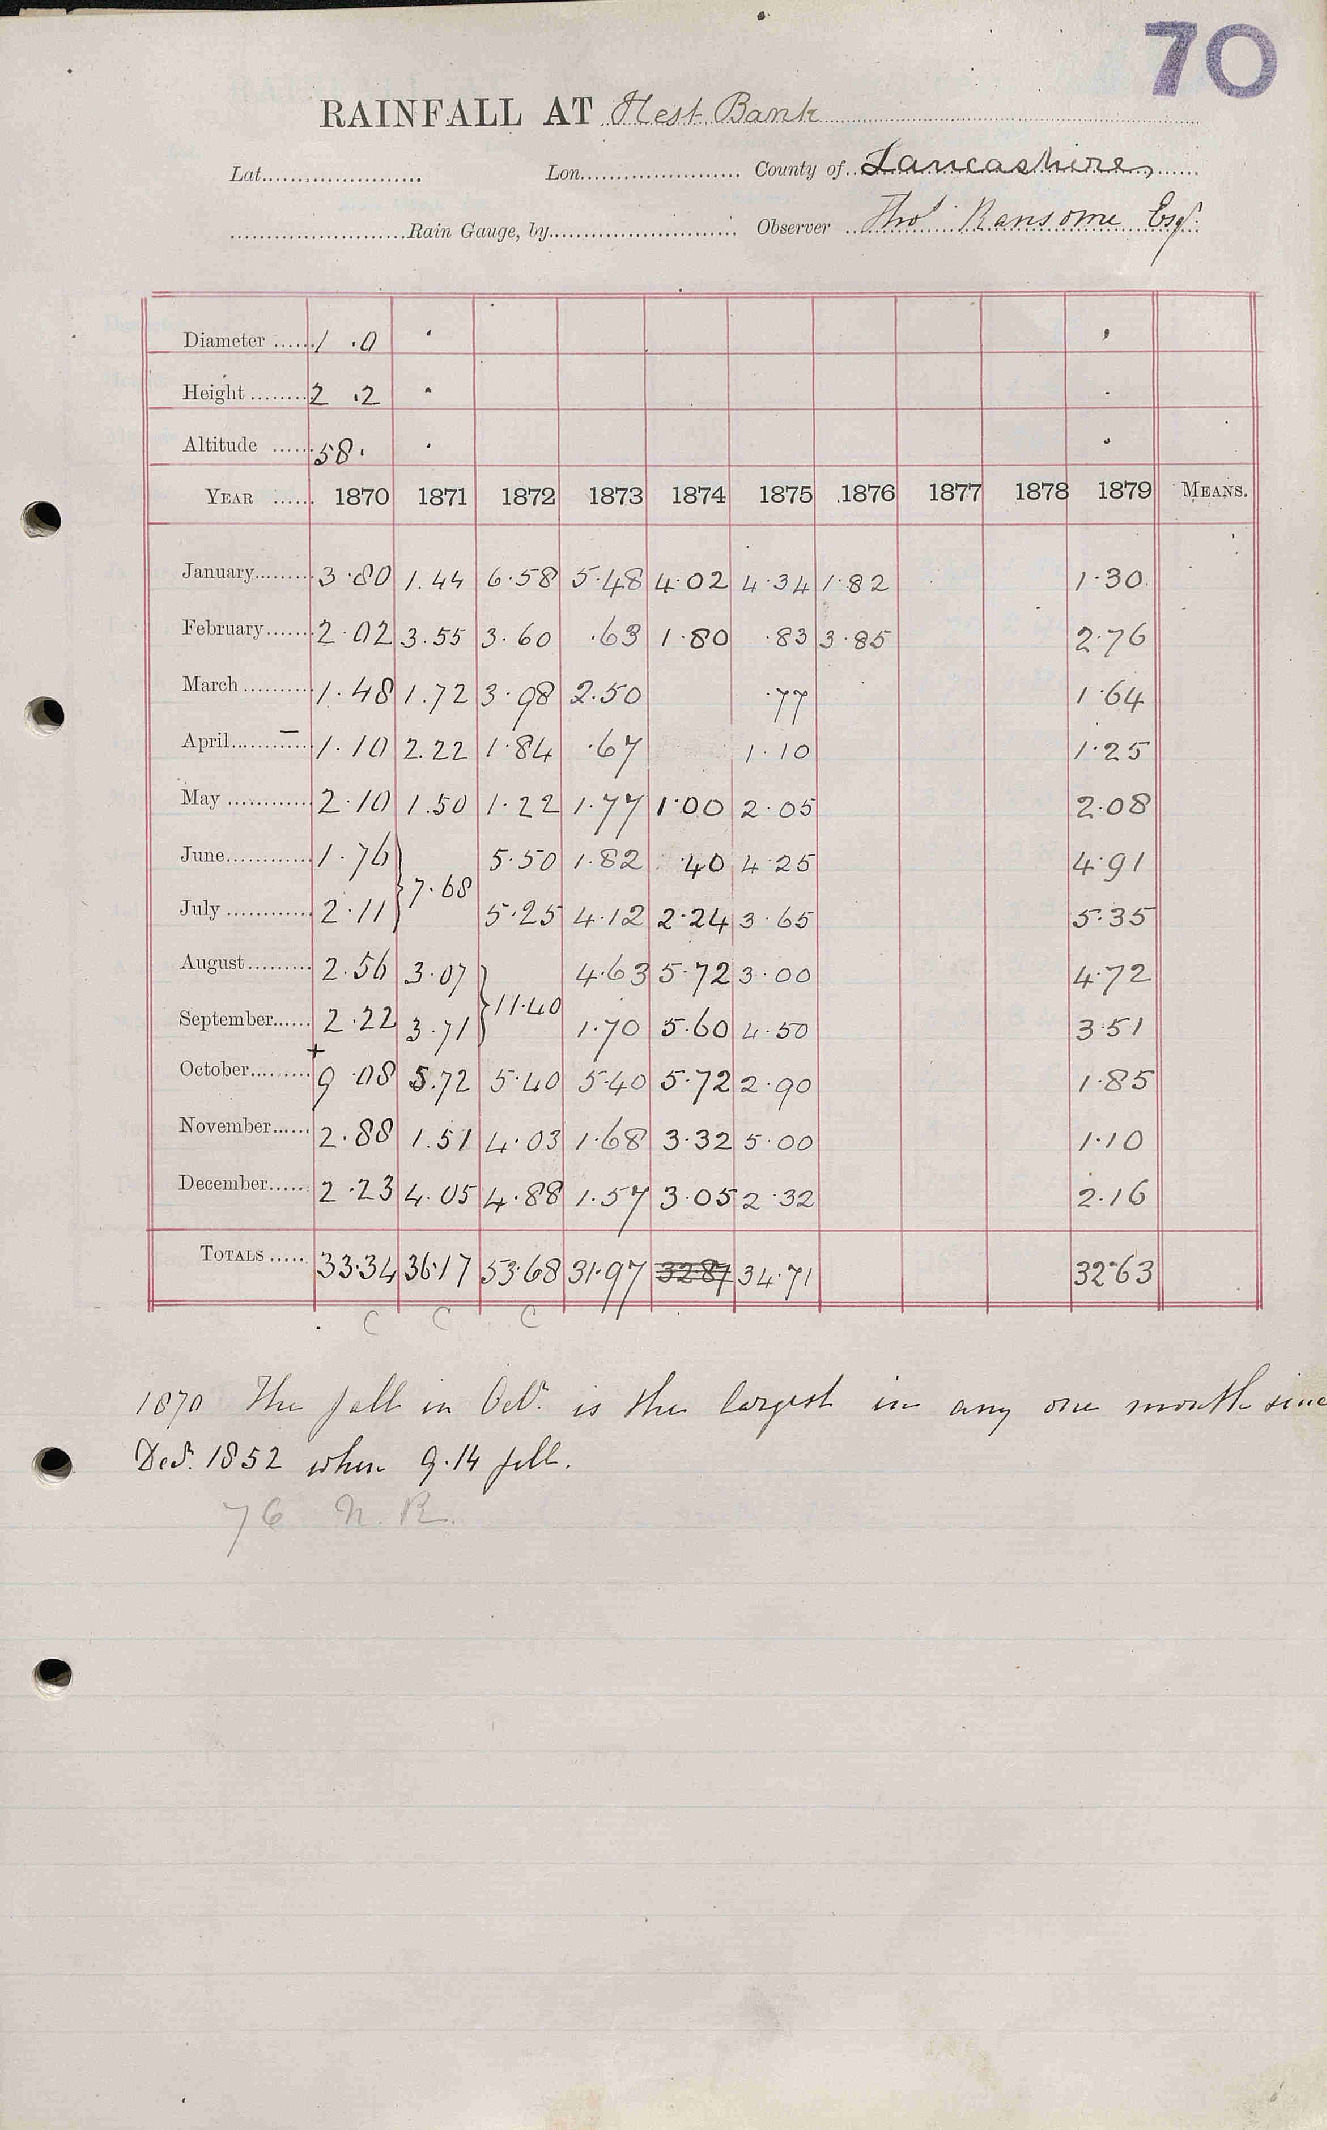 70
RAINFALL AT Hest Bank
Lat. Lon. County of Lancashire
Rain Gauge, by Observer Thos Ransome Esqr
Diameter 1 .0
Height 2 .2
Altitude 58.
YEAR 1870 1871 1872 1873 1874 1875 1876 1877 1878 1879 MEANS.
January 3.80 1.44 6.58 5.48 4.02 4.34 1.82 1.30
February 2.02 3.55 3.60 .63 1.80 .83 3.85 2.76
March 1.48 1.72 3.98 2.50 .77 1.64
April 1.10 2.22 1.84 .67 1.10 1.25
May 2.10 1.50 1.22 1.77 1.00 2.05 2.08
June 1.76 5.50 1.82 .40 4.25 4.91
7.68
July 2.11 5.25 4.12 2.24 3.65 5.35
August 2.56 3.07 4.63 5.72 3.00 4.72
11.40
September 2.22 3.71 1.70 5.60 4.50 3.51
October + 9.08 5.72 5.40 5.40 5.72 2.90 1.85
November 2.88 1.51 4.03 1.68 3.32 5.00 1.10
December 2.23 4.05 4.88 1.57 3.05 2.32 2.16
TOTALS 33.34 36.17 53.68 31.97 32.87 34.71 32.63
C C C
1870 The fall in Octr. is the largest in any one month since
Decr. 1852 when 9.14 fell.
76 N. R.